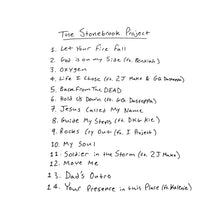 The Stonebrook Project
1. Let Your Fire Fall
2. God is on my Side (ft. Benkiah)
3. Oxygen
4. Life I Chose (ft. ZJ Make & GG Dastreppa)
5. Back From The DEAD
6. Hold Us Down (ft. GG Dastreppa)
7. Jesus Called My Name
8. Guide My Steps (ft. DKG Kie)
9. Rocks Cry Out (ft. I Project)
10. My Soul
11. Soldier in the Storm (ft. ZJ Make)
12. Move Me
13. Dad's Outro
14. Your Presence in this Place (ft. Kalexie)